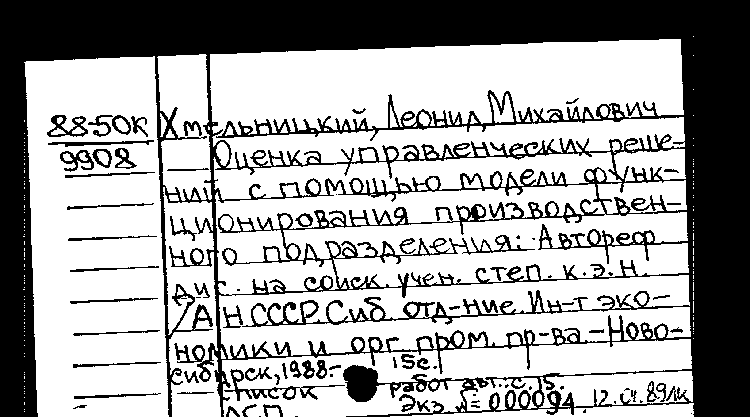 88-50К Хмельницкий, Леонид Михайлович
9908 Оценка управленческих реше-
ний с помощью модели функ-
ционирования производствен-
ного подразделения: Автореф
дис. на соиск. учен. степ. к.э.н.
/АН СССР. Сиб. отд-ние. Ин-т эко-
номики и орг. пром. пр-ва.-Ново-
сибирск, 1988.- 15с.
Список работ авт.: с. 15.
ДСП. Экз. №= 000094 12.